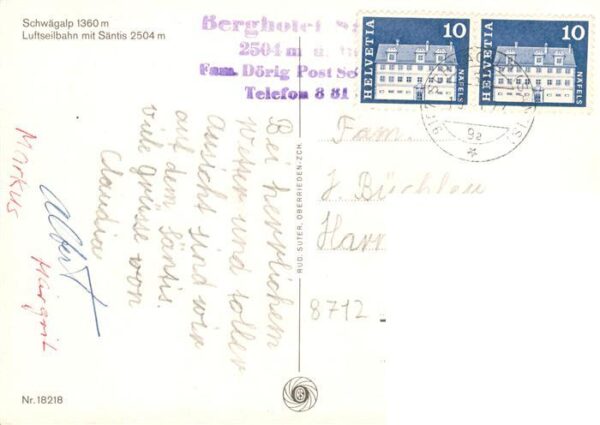 Schwägalp 1360 m
Luftseilbahn mit Säntis 2504 m
Berghotel
2504 m
Fam. Dörig Post
Telefon 8 81
10
HELVETIA
NÄFELS
10
HELVETIA
NÄFELS
9a
Bei herrlichem
Wetter und toller
Aussicht sind wir
auf dem Säntis.
Viele Grüsse von
Claudia
Albert
Margrit
Markus
RUD. SUTER, OBERRIEDEN-ZCH.
Fam.
J. Büchler
8712
Nr. 18218